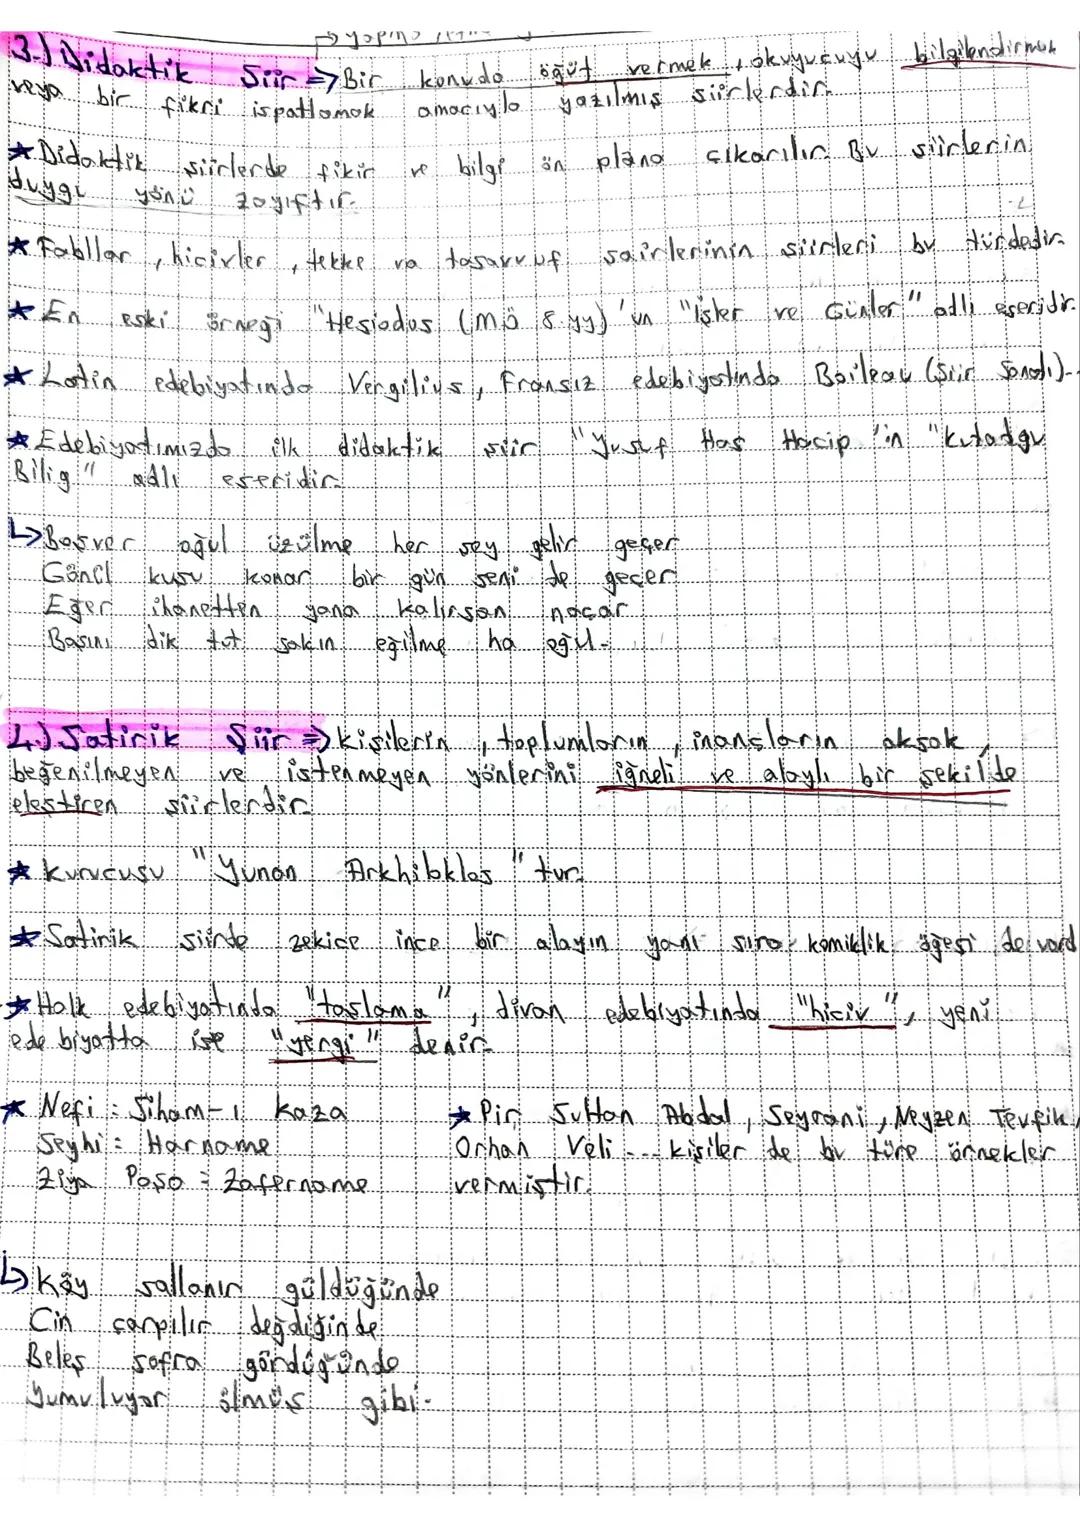 3-) Didaktik Şiir => Bir konuda öğüt vermek, okuyucuyu bilgilendirmek
veya bir fikri ispatlamak amacıyla yazılmış şiirlerdir.
★ Didaktik şiirlerde fikir ve bilgi ön plana çıkarılır. Bu şiirlerin
duygu yönü zayıftır.
★ Fabllar, hicivler, tekke ve tasavvuf şairlerinin şiirleri bu türdedir.
★ En eski örneği "Hesiodos (MÖ 8.yy)'un "İşler ve Günler" adlı eseridir.
★ Latin edebiyatında Vergilius, Fransız edebiyatında Boileau (Şiir Sanatı).
★ Edebiyatımızda ilk didaktik şiir "Yusuf Has Hacip'in "Kutadgu
Bilig" adlı eseridir.
↳ Boşver oğul üzülme her şey gelir geçer
Gönül kuşu konar bir gün seni de geçer
Eğer ihanetten yana kalırsan naçar
Başını dik tut sakın eğilme ha oğul.
4-) Satirik Şiir => Kişilerin, toplumların, inançların aksak,
beğenilmeyen ve istenmeyen yönlerini iğneli ve alaylı bir şekilde
eleştiren şiirlerdir.
★ Kurucusu "Yunan Arkhiloklos" tur.
★ Satirik şiirde zekice ince bir alayın yanı sıra komiklik öğesi de vard
★ Halk edebiyatında "taşlama", divan edebiyatında "hiciv", yeni
edebiyatta ise "yergi" denir.
★ Nefi : Siham-ı Kaza
Şeyhi : Harname
Ziya Paşa : Zafername
★ Pir Sultan Abdal, Seyrani, Neyzen Tevfik,
Orhan Veli ... kişiler de bu türe örnekler
vermiştir.
↳ Köy sallanır güldüğünde
Cin çarpılır değdiğinde
Beleş sofra gördüğünde
Yumuluyor ölmüş gibi.